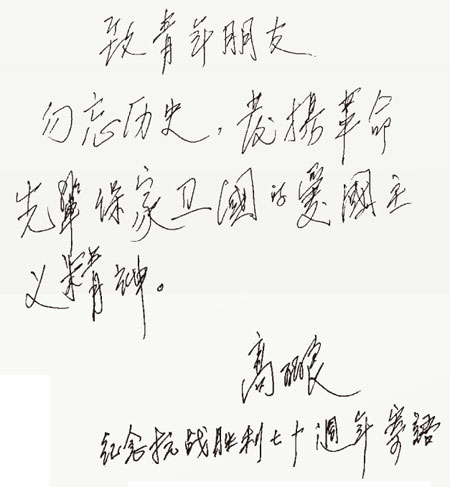 致青年朋友
勿忘历史，發揚革命
先輩保家卫國的愛國主
义精神。
高
纪念抗战胜利七十週年寄語